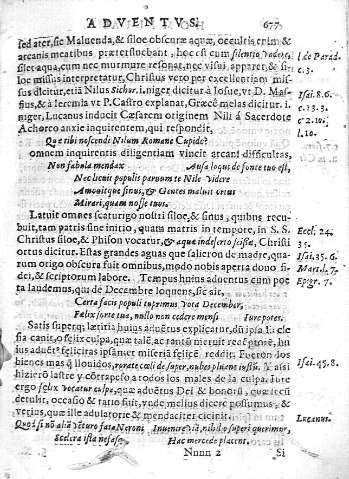 ADVENTVS. 677.
sed ater, sic Maluenda, & siloe obscuræ aquæ, occultis enim &
arcanis meatibus præterfluebant, hoc est cum silentio vadere,
silet aqua, cum nec murmure resonat, nec visui apparet, & si-
loc missus interpretatur, Christus vero per excellentiam mis-
sus dicitur, etiã Nilus Sichor. i. niger dicitur à Iosue, vt D. Ma-
sius, & à Ieremia vt P. Castro explanat, Græcè melas dicitur. i.
niger, Lucanus inducit Cæsarem originem Nili á Sacerdote
Achoreo anxie inquirentem, qui respondit,
Que tibi noscendi Nilum Romane Cupido?
omnem inquirentis diligentiam vincit arcani difficultas,
Non fabula mendax Ausa loqui de fonte tuo est,
Nec licuit populis paruum te Nile videre
Amouitque sinus, & Gentes maluit ortus
Mirari, quam nosse tuos.
Latuit omnes scaturigo nostri siloe, & sinus, quibus recu-
buit, tam patris sine initio, quam matris in tempore, in S. S.
Christus siloe, & Phison vocatur, & aquæ in deserto scissæ, Christi
ortus dicitur. Estas grandes aguas que salieron de madre, qua-
rum origo obscura fuit omnibus, modo nobis aperta dono fi-
dei, & scriptorum labore. Tempus huius aduentus cum poe-
ta laudemus, qui de Decembre loquens, sic ait,
Certa facis populi tuprimus vota December,
Felix forte tua, nullo non cedere mensi Iure potes.
Satis superq; lætitia huius aduentus explicatur, dñ ipsa Ec̃cle
sia canit, o felix culpa, quæ talẽ, ac tantũ meruit rec̃eptorẽ, hu
ius aduẽtꝰ felicitas ipsãmet miseriã felicẽ reddit. Fueron los
bienes mas q̃ lluuidos, rorate cœli de super, nubes pluãt iustũ. Y assi
hizierõ lastre y cõtrapeso a todos los males de la culpa. Iure
ergo felix vocatur culpa, quæ aduẽtus Dei & bonorũ, quæ secũ
detulit, occasio & ratio fuit, vnde melius dicere possumus, &
verius, quæ ille adulatorie & mendaciter cecinit.
Quod si nõ aliã vẽturo fata Neroni Inuenere viã, nihil o superi querimur,
Scelera ista nefasq; Hac mercede placent.
Nnnn 2 Si
I de Parad.
c. 3.
Isai. 8. 6.
c. 13. 3.
c 2. 10.
l. 10.
Eccl. 24.
35.
Isai. 35. 6.
Mart. l. 7.
Epigr. 7.
Isai. 45. 8.
Lucanus.